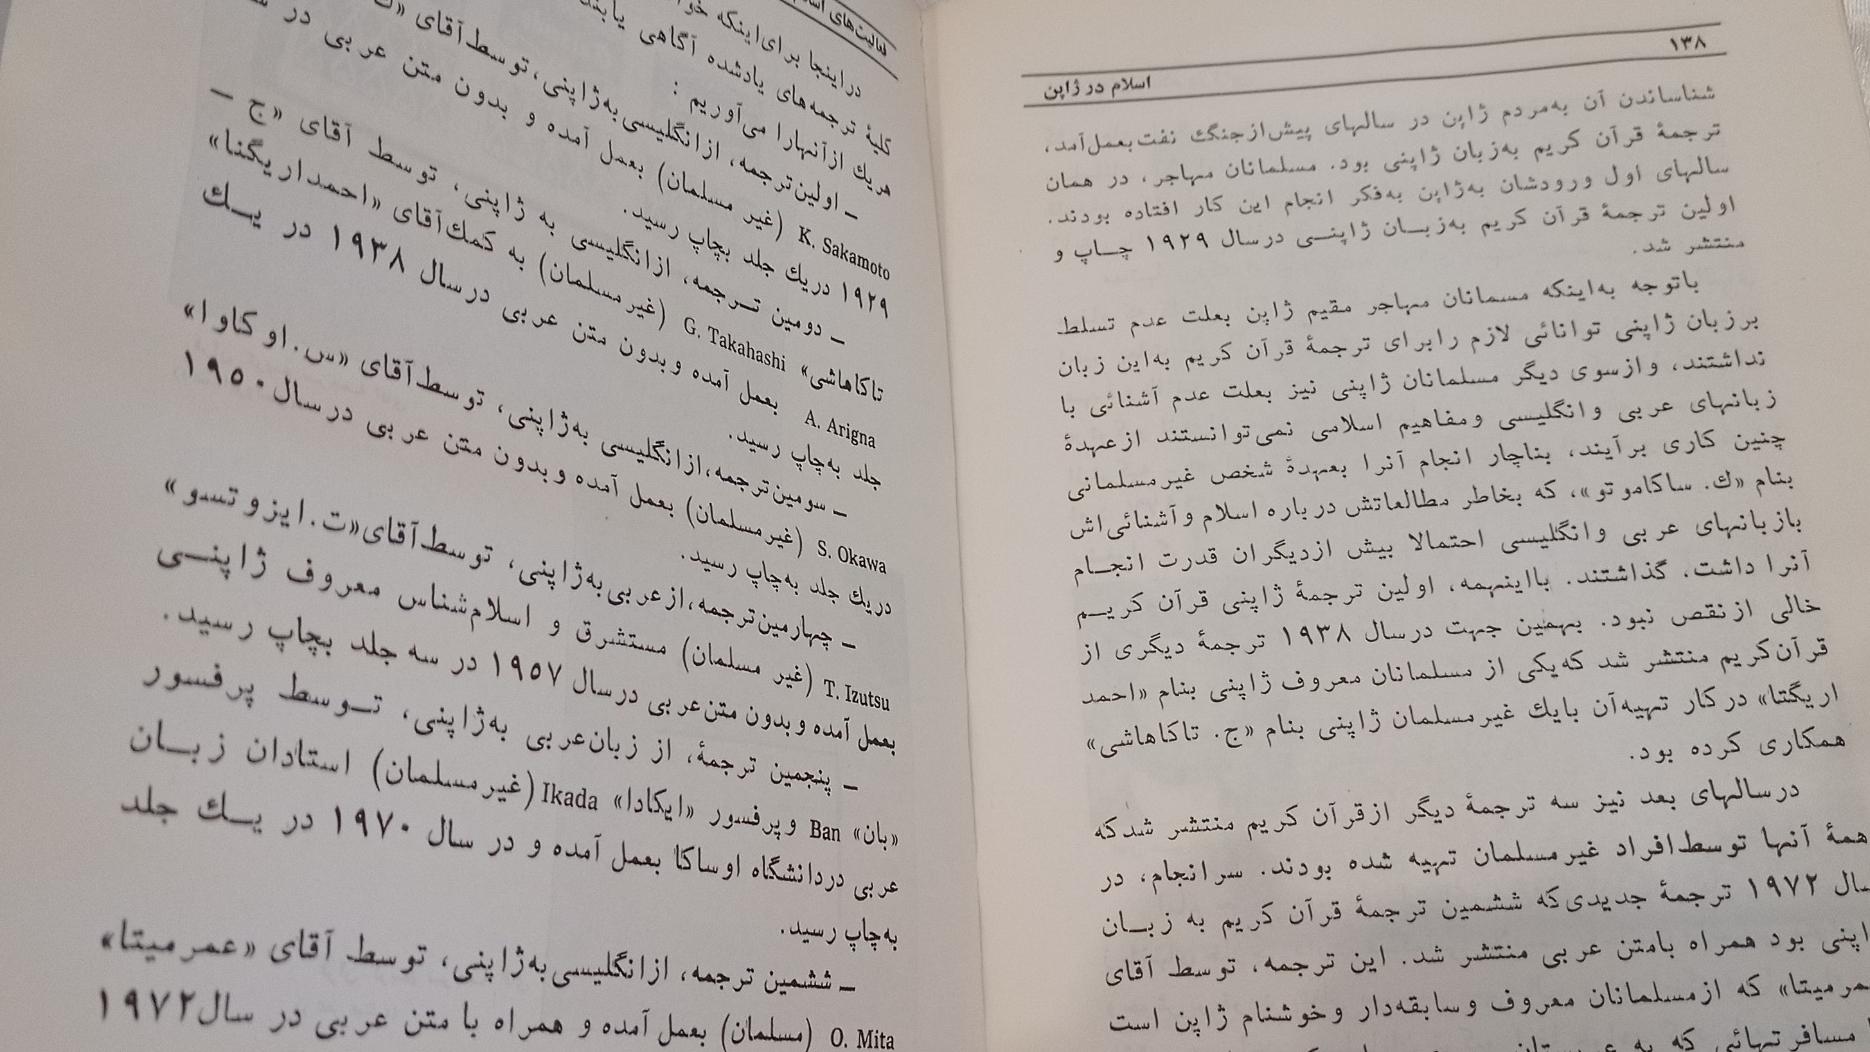 ۱۳۸
اسلام در ژاپن
شناساندن آن به‌مردم ژاپن در سالهای پیش‌ازجنگ نفت‌بعمل‌آمد،
ترجمهٔ قرآن کریم به‌زبان ژاپنی بود. مسلمانان مهاجر، در همان
سالهای اول ورودشان به‌ژاپن به‌فکر انجام این کار افتاده بودند.
اولین ترجمهٔ قرآن کریم به‌زبـان ژاپنـی درسال ۱۹۲۹ چـاپ و
منتشر شد.
باتوجه به‌اینکه مسمانان مهاجر مقیم ژاپن بعلت عدم تسلط
برزبان ژاپنی توانائی لازم رابرای ترجمهٔ قرآن کریم به‌این زبان
نداشتند، وازسوی دیگر مسلمانان ژاپنی نیز بعلت عدم آشنائی با
زبانهای عربی وانگلیسی ومفاهیم اسلامی نمی‌توانستند ازعهدهٔ
چنین کاری برآیند، بناچار انجام آنرا بعهدهٔ شخص غیرمسلمانی
بنام «ك. ساکاموتو»، که بخاطر مطالعاتش درباره اسلام وآشنائی‌اش
بازبانهای عربی وانگلیسی احتمالا بیش ازدیگران قدرت انجـام
آنرا داشت، گذاشتند. بااینهمه، اولین ترجمهٔ ژاپنی قرآن کریـم
خالی ازنقص نبود. بهمین جهت درسال ۱۹۳۸ ترجمهٔ دیگری از
قرآن‌کریم منتشر شد که‌یکی از مسلمانان معروف ژاپنی بنام «احمد
اریگتا» درکار تهیه‌آن بایك غیرمسلمان ژاپنی بنام «ج. تاکاهاشی»
همکاری کرده بود.
درسالهای بعد نیز سه ترجمهٔ دیگر ازقرآن کریم منتشر شدکه
همهٔ آنها توسط‌افراد غیرمسلمان تهیه شده بودند. سرانجام، در
سال ۱۹۷۲ ترجمهٔ جدیدی‌که ششمین ترجمهٔ قرآن کریم به زبـان
اپنی بود همراه بامتن عربی منتشر شد. این ترجمه، توسط آقای
عمرمیتا» که ازمسلمانان معروف وسابقه‌دار وخوشنام ژاپن است
مسافرتهائی که به
فعالیت‌های
دراینجا برای‌اینکه
کلیهٔ ترجمه‌های یادشده آگاهی
هریك ازآنهارا می‌آوریم :
ــ اولین‌ترجمه، ازانگلیسی‌به‌ژاپنی، توسط‌آقای
K. Sakamoto (غیر مسلمان) بعمل آمده و بدون متن عربی در
۱۹۲۹ دریك جلد بچاپ رسید.
ــ دومین تـرجمه، ازانگلیسی به ژاپنی، توسط آقای «ج ــ
تاکاهاشی» G. Takahashi (غیرمسلمان) به کمك‌آقای «احمداریگنا»
A. Arigna بعمل آمده وبدون متن عربی درسال ۱۹۳۸ در یـك
جلد به‌چاپ رسید.
ــ سومین‌ترجمه،ازانگلیسی به‌ژاپنی، توسط‌آقای «س.اوکاوا»
S. Okawa (غیرمسلمان) بعمل آمده وبدون متن عربی درسال۱۹۵۰
دریك جلد به‌چاپ رسید.
ــ چهارمین‌ترجمه،ازعربی‌به‌ژاپنی، توسط‌آقای«ت.ایزوتسو»
T. Izutsu (غیر مسلمان) مستشرق و اسلام‌شناس معروف ژاپنـی
بعمل آمده وبدون متن‌عربی درسال ۱۹۵۷ در سه جلد بچاپ رسید.
ــ پنجمین ترجمهٔ، از زبان‌عربی به‌ژاپنی، تـوسط پرفسور
«بان» Ban وپرفسور «ایکادا» Ikada (غیرمسلمان) استادان زبـان
عربی دردانشگاه اوساکا بعمل آمده و در سال ۱۹۷۰ در یـك جلد
به‌چاپ رسید.
ــ ششمین ترجمه، ازانگلیسی‌به‌ژاپنی، توسط آقای «عمرمیتا»
O. Mita (مسلمان) بعمل آمده و همراه با متن عربی در سال۱۹۷۲